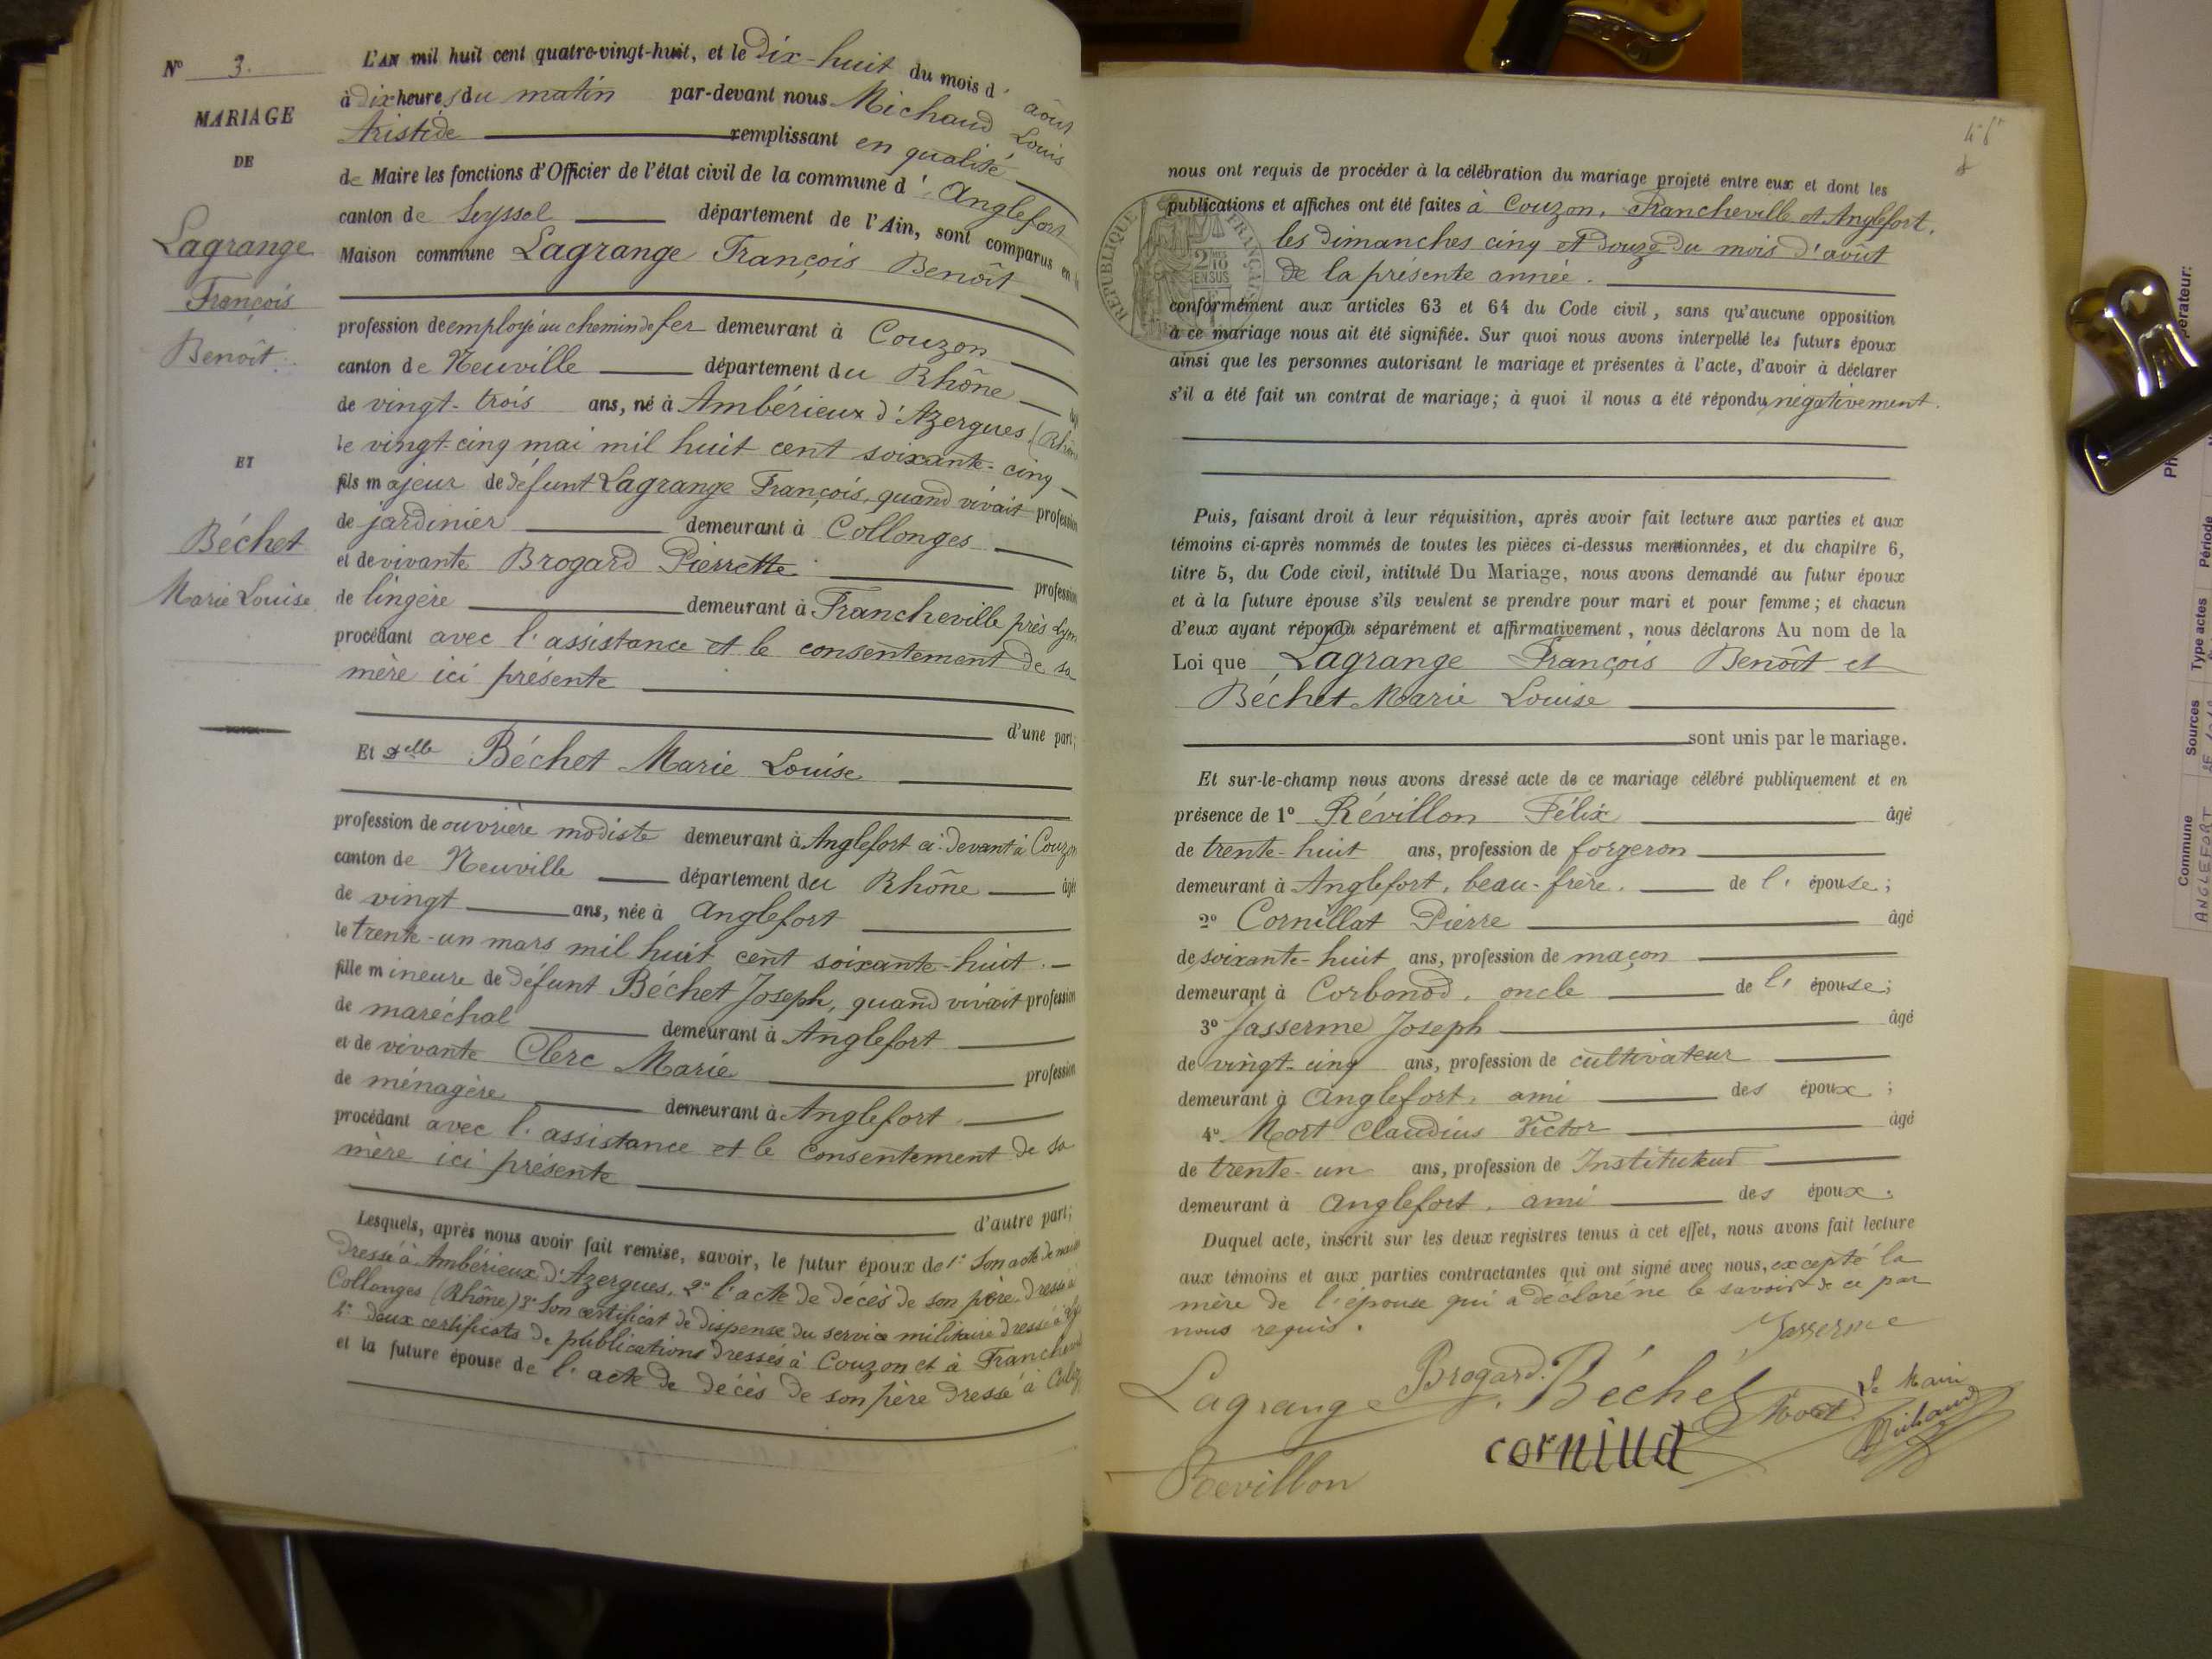 N° 3.
MARIAGE
DE
Lagrange
François
Benoît.
ET
Béchet
Marie Louise
L'AN mil huit cent quatre-vingt-huit, et le Dix-huit du mois d'août
à Dix heures du matin par-devant nous Michaud Louis
Aristide remplissant en qualité
de Maire les fonctions d'Officier de l'état civil de la commune d'Anglefort
canton de Seyssel département de l'Ain, sont comparus en la
Maison commune Lagrange François Benoît
profession de employé au chemin de fer demeurant à Couzon
canton de Neuville département du Rhône âgé
de vingt-trois ans, né à Ambérieux d'Azergues (Rhône
le vingt-cinq mai mil huit cent soixante-cinq
fils majeur de défunt Lagrange François, quand vivait profession
de jardinier demeurant à Collonges
et de vivante Brogard Pierrette profession
de lingère demeurant à Francheville près Lyon
procédant avec l'assistance et le consentement de sa
mère ici présente
d'une part;
Et Delle Béchet Marie Louise
profession de ouvrière modiste demeurant à Anglefort ci-devant à Couzon
canton de Neuville département du Rhône âgée
de vingt ans, née à Anglefort
le trente-un mars mil huit cent soixante-huit.
fille mineure de défunt Béchet Joseph, quand vivait profession
de maréchal demeurant à Anglefort
et de vivante Clerc Marie profession
de ménagère demeurant à Anglefort
procédant avec l'assistance et le consentement de sa
mère ici présente
d'autre part;
Lesquels, après nous avoir fait remise, savoir, le futur époux de 1° Son acte de
dressé à Ambérieux d'Azergues, 2° l'acte de décès de son père dressé à
Collonges (Rhône) 3° Son certificat de dispense du service militaire dressé à
4° deux certificats de publications dressés à Couzon et à Francheville
et la future épouse de l'acte de décès de son père dressé à
nous ont requis de procéder à la célébration du mariage projeté entre eux et dont les
publications et affiches ont été faites à Couzon, Francheville et Anglefort,
les dimanches cinq et douze du mois d'août
de la présente année.
RÉPUBLIQUE FRANÇAISE
2 MES
10
EN SUS
conformément aux articles 63 et 64 du Code civil, sans qu'aucune opposition
à ce mariage nous ait été signifiée. Sur quoi nous avons interpellé les futurs époux
ainsi que les personnes autorisant le mariage et présentes à l'acte, d'avoir à déclarer
s'il a été fait un contrat de mariage; à quoi il nous a été répondu négativement.
Puis, faisant droit à leur réquisition, après avoir fait lecture aux parties et aux
témoins ci-après nommés de toutes les pièces ci-dessus mentionnées, et du chapitre 6,
titre 5, du Code civil, intitulé Du Mariage, nous avons demandé au futur époux
et à la future épouse s'ils veulent se prendre pour mari et pour femme; et chacun
d'eux ayant répondu séparément et affirmativement, nous déclarons Au nom de la
Loi que Lagrange François Benoît et
Béchet Marie Louise
sont unis par le mariage.
Et sur-le-champ nous avons dressé acte de ce mariage célébré publiquement et en
présence de 1° Révillon Félix âgé
de trente-huit ans, profession de forgeron
demeurant à Anglefort, beau-frère. de l'épouse;
2° Cornillat Pierre âgé
de soixante-huit ans, profession de maçon
demeurant à Corbonod, oncle de l'épouse;
3° Jasserme Joseph âgé
de vingt-cinq ans, profession de cultivateur
demeurant à Anglefort, ami des époux;
4° Mort Claudius Victor âgé
de trente-un ans, profession de Instituteur
demeurant à Anglefort, ami des époux.
Duquel acte, inscrit sur les deux registres tenus à cet effet, nous avons fait lecture
aux témoins et aux parties contractantes qui ont signé avec nous, excepté la
mère de l'épouse qui a déclaré ne le savoir de ce par
nous requis.
Jasserme
Lagrange Brogard. Béchet Mort Le Maire
Michaud
Revillon
Commune
Sources
Type actes
Période
ANGLEFORT